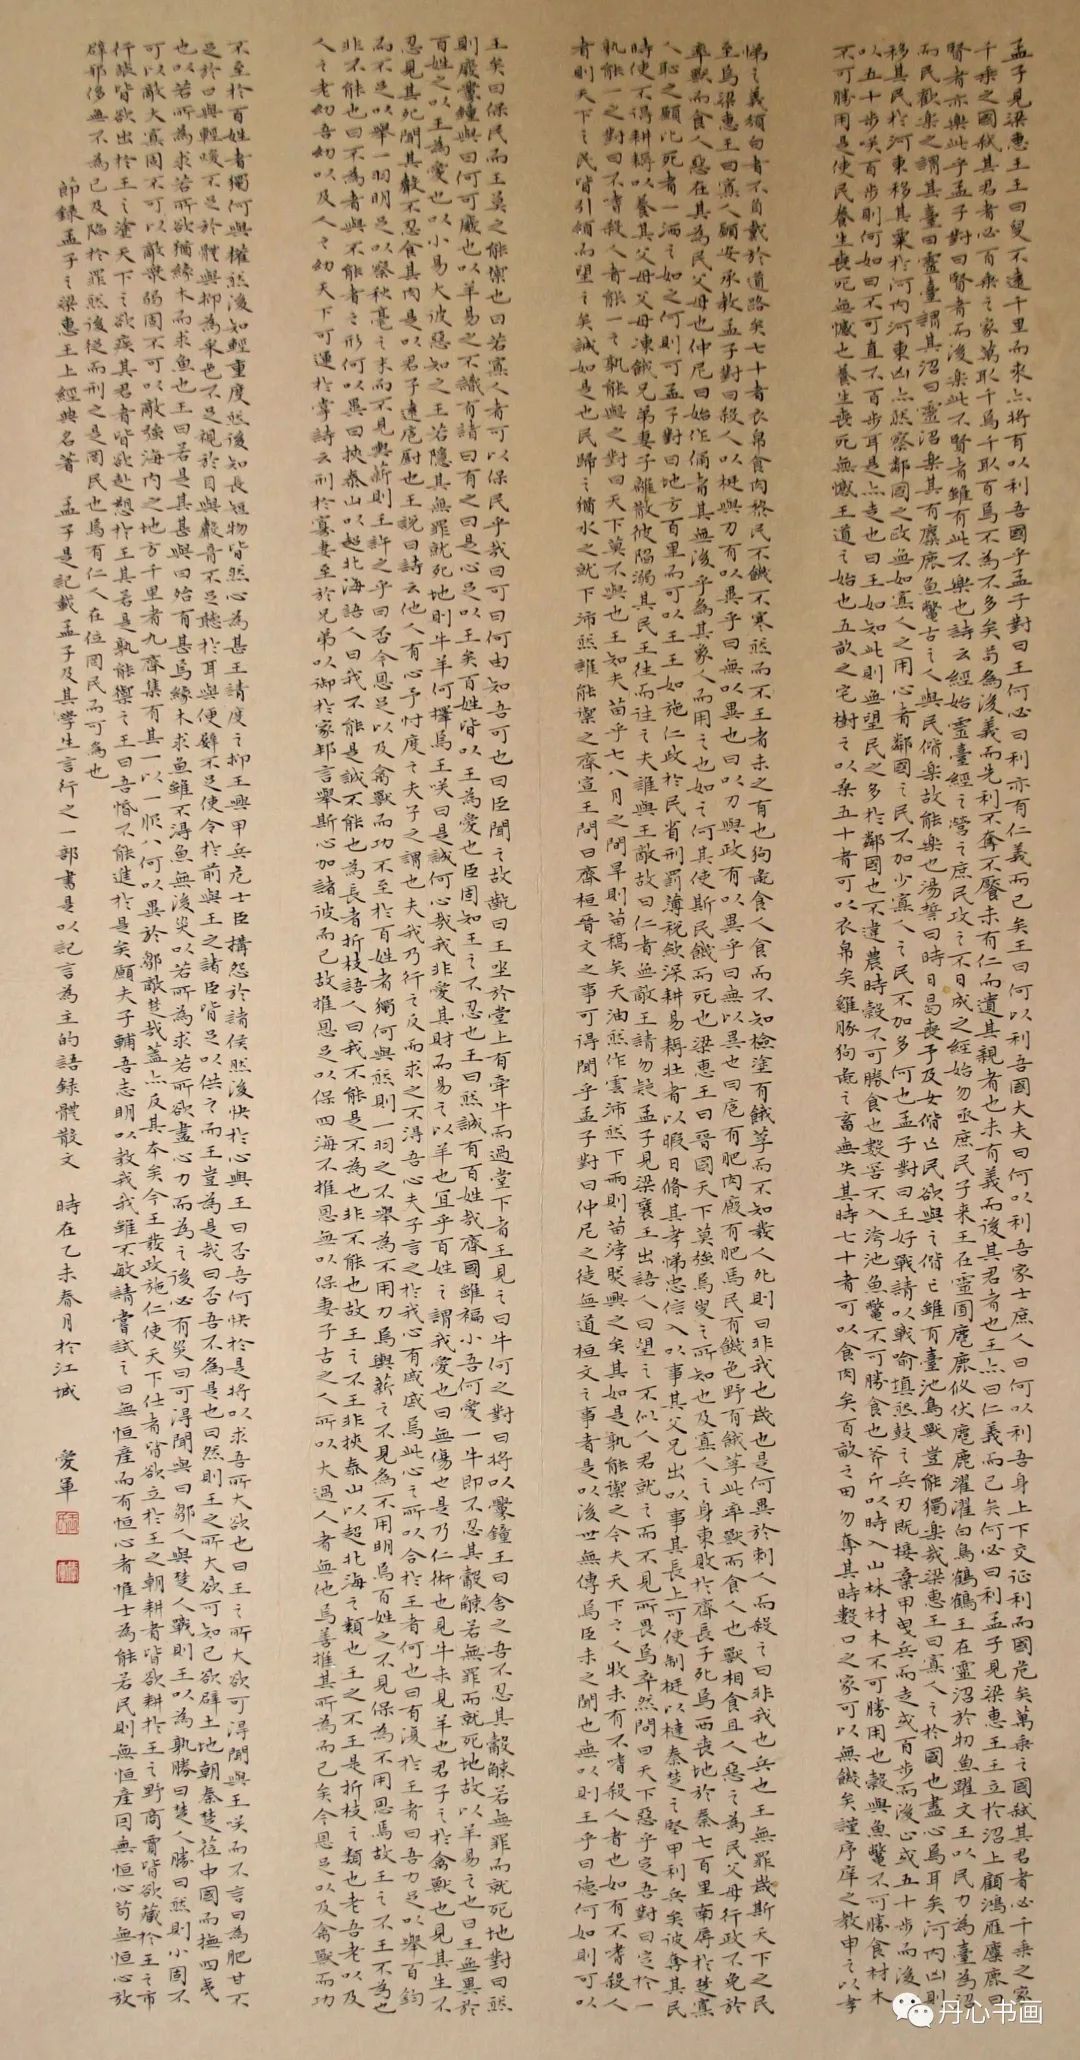 孟子見梁惠王王曰叟不遠千里而來亦將有以利吾國乎孟子對曰王何必曰利亦有仁義而已矣王曰何以利吾國大夫曰何以利吾家士庶人曰何以利吾身上下交征利而國危矣萬乘之國弒其君者必千乘之家
千乘之國弒其君者必百乘之家萬取千焉千取百焉不為不多矣苟為後義而先利不奪不饜未有仁而遺其親者也未有義而後其君者也王亦曰仁義而已矣何必曰利孟子見梁惠王王立於沼上顧鴻雁麋鹿曰
賢者亦樂此乎孟子對曰賢者而後樂此不賢者雖有此不樂也詩云經始靈臺經之營之庶民攻之不日成之經始勿亟庶民子來王在靈囿麀鹿攸伏麀鹿濯濯白鳥鶴鶴王在靈沼於牣魚躍文王以民力為臺為沼
而民歡樂之謂其臺曰靈臺謂其沼曰靈沼樂其有麋鹿魚鱉古之人與民偕樂故能樂也湯誓曰時日曷喪予及女偕亡民欲與之偕亡雖有臺池鳥獸豈能獨樂哉梁惠王曰寡人之於國也盡心焉耳矣河內凶則
移其民於河東移其粟於河內河東凶亦然察鄰國之政無如寡人之用心者鄰國之民不加少寡人之民不加多何也孟子對曰王好戰請以戰喻填然鼓之兵刃既接棄甲曳兵而走或百步而後止或五十步而後
以五十步笑百步則何如曰不可直不百步耳是亦走也曰王如知此則無望民之多於鄰國也不違農時穀不可勝食也數罟不入洿池魚鱉不可勝食也斧斤以時入山林材木不可勝用也穀與魚鱉不可勝食材木
不可勝用是使民養生喪死無憾也養生喪死無憾王道之始也五畝之宅樹之以桑五十者可以衣帛矣雞豚狗彘之畜無失其時七十者可以食肉矣百畝之田勿奪其時數口之家可以無饑矣謹庠序之教申之以孝
悌之義頒白者不負戴於道路矣七十者衣帛食肉黎民不饑不寒然而不王者未之有也狗彘食人食而不知檢塗有餓莩而不知發人死則曰非我也歲也是何異於刺人而殺之曰非我也兵也王無罪歲斯天下之民
至焉梁惠王曰寡人願安承教孟子對曰殺人以梃與刃有以異乎曰無以異也曰以刃與政有以異乎曰無以異也曰庖有肥肉廄有肥馬民有饑色野有餓莩此率獸而食人也獸相食且人惡之為民父母行政不免於
率獸而食人惡在其為民父母也仲尼曰始作俑者其無後乎為其象人而用之也如之何其使斯民饑而死也梁惠王曰晉國天下莫強焉叟之所知也及寡人之身東敗於齊長子死焉西喪地於秦七百里南辱於楚寡
人恥之願比死者一洒之如之何則可孟子對曰地方百里而可以王王如施仁政於民省刑罰薄稅歛深耕易耨壯者以暇日脩其孝悌忠信入以事其父兄出以事其長上可使制梃以撻秦楚之堅甲利兵矣彼奪其民
時使不得耕耨以養其父母父母凍餓兄弟妻子離散彼陷溺其民王往而征之夫誰與王敵故曰仁者無敵王請勿疑孟子見梁襄王出語人曰望之不似人君就之而不見所畏焉卒然問曰天下惡乎定吾對曰定於一
孰能一之對曰不嗜殺人者能一之孰能與之對曰天下莫不與也王知夫苗乎七八月之間旱則苗槁矣天油然作雲沛然下雨則苗浡然興之矣其如是孰能禦之今夫天下之人牧未有不嗜殺人者也如有不嗜殺人
者則天下之民皆引領而望之矣誠如是也民歸之猶水之就下沛然誰能禦之齊宣王問曰齊桓晉文之事可得聞乎孟子對曰仲尼之徒無道桓文之事者是以後世無傳焉臣未之聞也無以則王乎曰德何如則可以
王矣曰保民而王莫之能禦也曰若寡人者可以保民乎哉曰可曰何由知吾可也曰臣聞之故齕曰王坐於堂上有牽牛而過堂下者王見之曰牛何之對曰將以釁鐘王曰舍之吾不忍其觳觫若無罪而就死地對曰然
則廢釁鐘與曰何可廢也以羊易之不識有諸曰有之曰是心足以王矣百姓皆以王為愛也臣固知王之不忍也王曰然誠有百姓哉齊國雖褊小吾何愛一牛即不忍其觳觫若無罪而就死地故以羊易之也曰王無異於
百姓之以王為愛也以小易大彼惡知之王若隱其無罪就死地則牛羊何擇焉王笑曰是誠何心哉我非愛其財而易之以羊也宜乎百姓之謂我愛也曰無傷也是乃仁術也見牛未見羊也君子之於禽獸也見其生不
忍見其死聞其聲不忍食其肉是以君子遠庖廚也王說曰詩云他人有心予忖度之夫子之謂也夫我乃行之反而求之不得吾心夫子言之於我心有戚戚焉此心之所以合於王者何也曰有復於王者曰吾力足以舉百鈞
而不足以舉一羽明足以察秋毫之末而不見輿薪則王許之乎曰否今恩足以及禽獸而功不至於百姓者獨何與然則一羽之不舉為不用力焉輿薪之不見為不用明焉百姓之不見保為不用恩焉故王之不王不為也
非不能也曰不為者與不能者之形何以異曰挾泰山以超北海語人曰我不能是誠不能也為長者折枝語人曰我不能是不為也非不能也故王之不王非挾泰山以超北海之類也王之不王是折枝之類也老吾老以及
人之老幼吾幼以及人之幼天下可運於掌詩云刑於寡妻至於兄弟以御於家邦言舉斯心加諸彼而已故推恩足以保四海不推恩無以保妻子古之人所以大過人者無他焉善推其所為而已矣今恩足以及禽獸而功
不至於百姓者獨何與權然後知輕重度然後知長短物皆然心為甚王請度之抑王興甲兵危士臣搆怨於諸侯然後快於心與王曰否吾何快於是將以求吾所大欲也曰王之所大欲可得聞與王笑而不言曰為肥甘不
足於口與輕煖不足於體與抑為采色不足視於目與聲音不足聽於耳與便嬖不足使令於前與王之諸臣皆足以供之而王豈為是哉曰否吾不為是也曰然則王之所大欲可知已欲辟土地朝秦楚莅中國而撫四夷
也以若所為求若所欲猶緣木而求魚也王曰若是其甚與曰殆有甚焉緣木求魚雖不得魚無後災以若所為求若所欲盡心力而為之後必有災曰可得聞與曰鄒人與楚人戰則王以為孰勝曰楚人勝曰然則小固不
可以敵大寡固不可以敵眾弱固不可以敵強海內之地方千里者九齊集有其一以一服八何以異於鄒敵楚哉蓋亦反其本矣今王發政施仁使天下仕者皆欲立於王之朝耕者皆欲耕於王之野商賈皆欲藏於王之市
行旅皆欲出於王之塗天下之欲疾其君者皆欲赴愬於王其若是孰能禦之王曰吾惛不能進於是矣願夫子輔吾志明以教我我雖不敏請嘗試之曰無恒產而有恒心者惟士為能若民則無恒產因無恒心苟無恒心放
辟邪侈無不為已及陷於罪然後從而刑之是罔民也焉有仁人在位罔民而可為也
節錄孟子之梁惠王上經典名著 孟子是記載孟子及其學生言行之一部書是以記言為主的語錄體散文 時在乙未春月於江城 愛軍
丹心书画